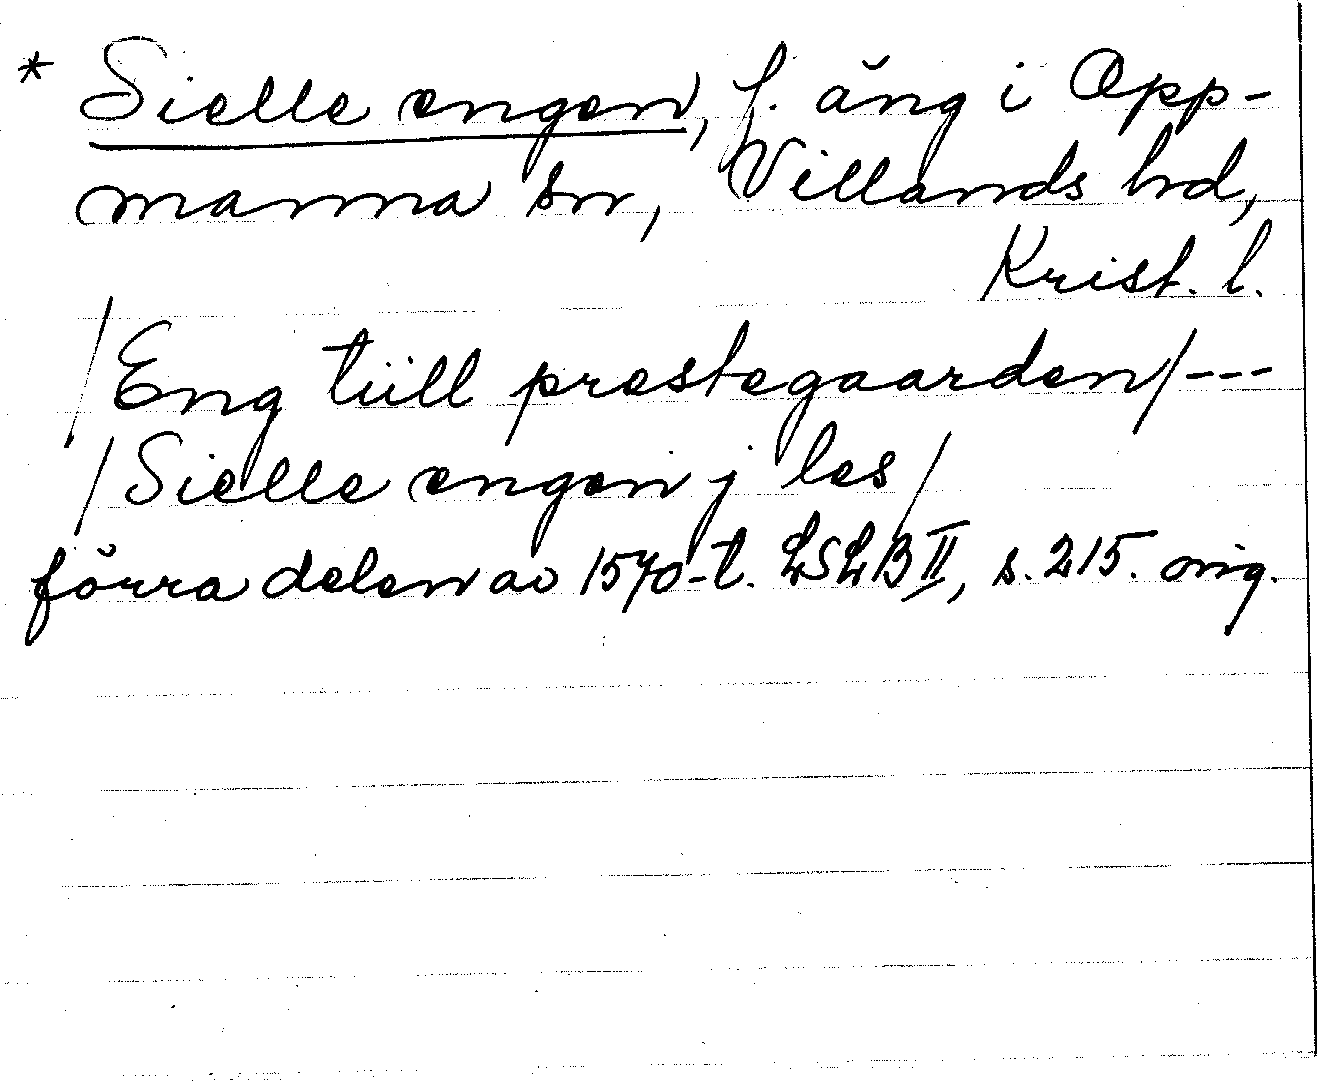 * Sielle engen, f. äng i Opp-
manna sn, Villands hd,
Krist. l.
/Eng tiill prestegaarden/---
/Sielle engen j les/
förra delen av 1570-t. LSLB II, s. 215. orig.